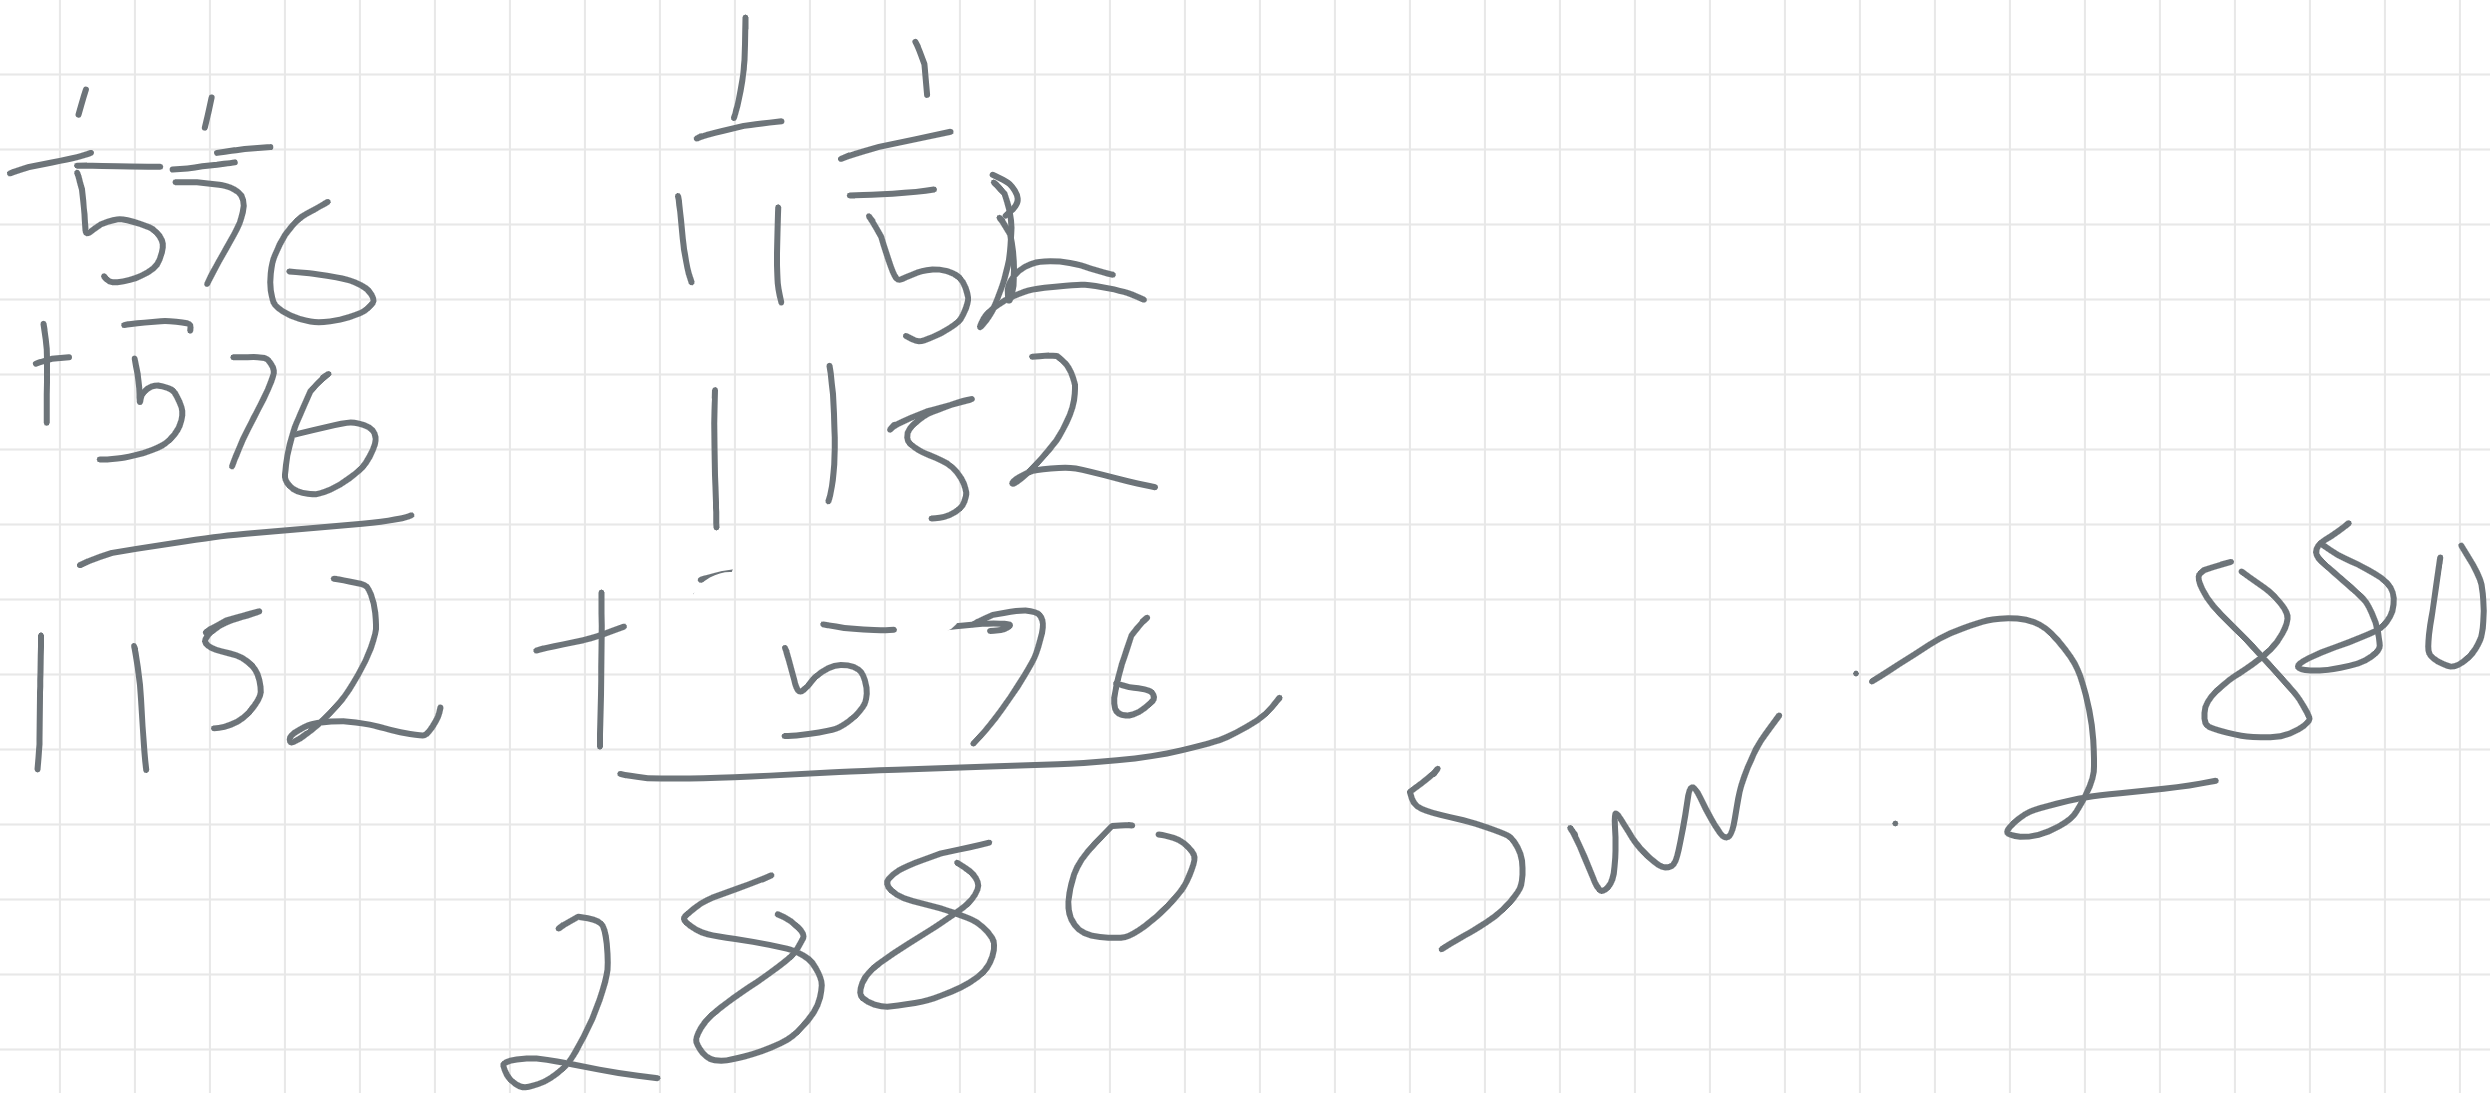 1 1
576
+ 576
1152
1 1
1152
1152
+ 576
2880
Sum: 2880